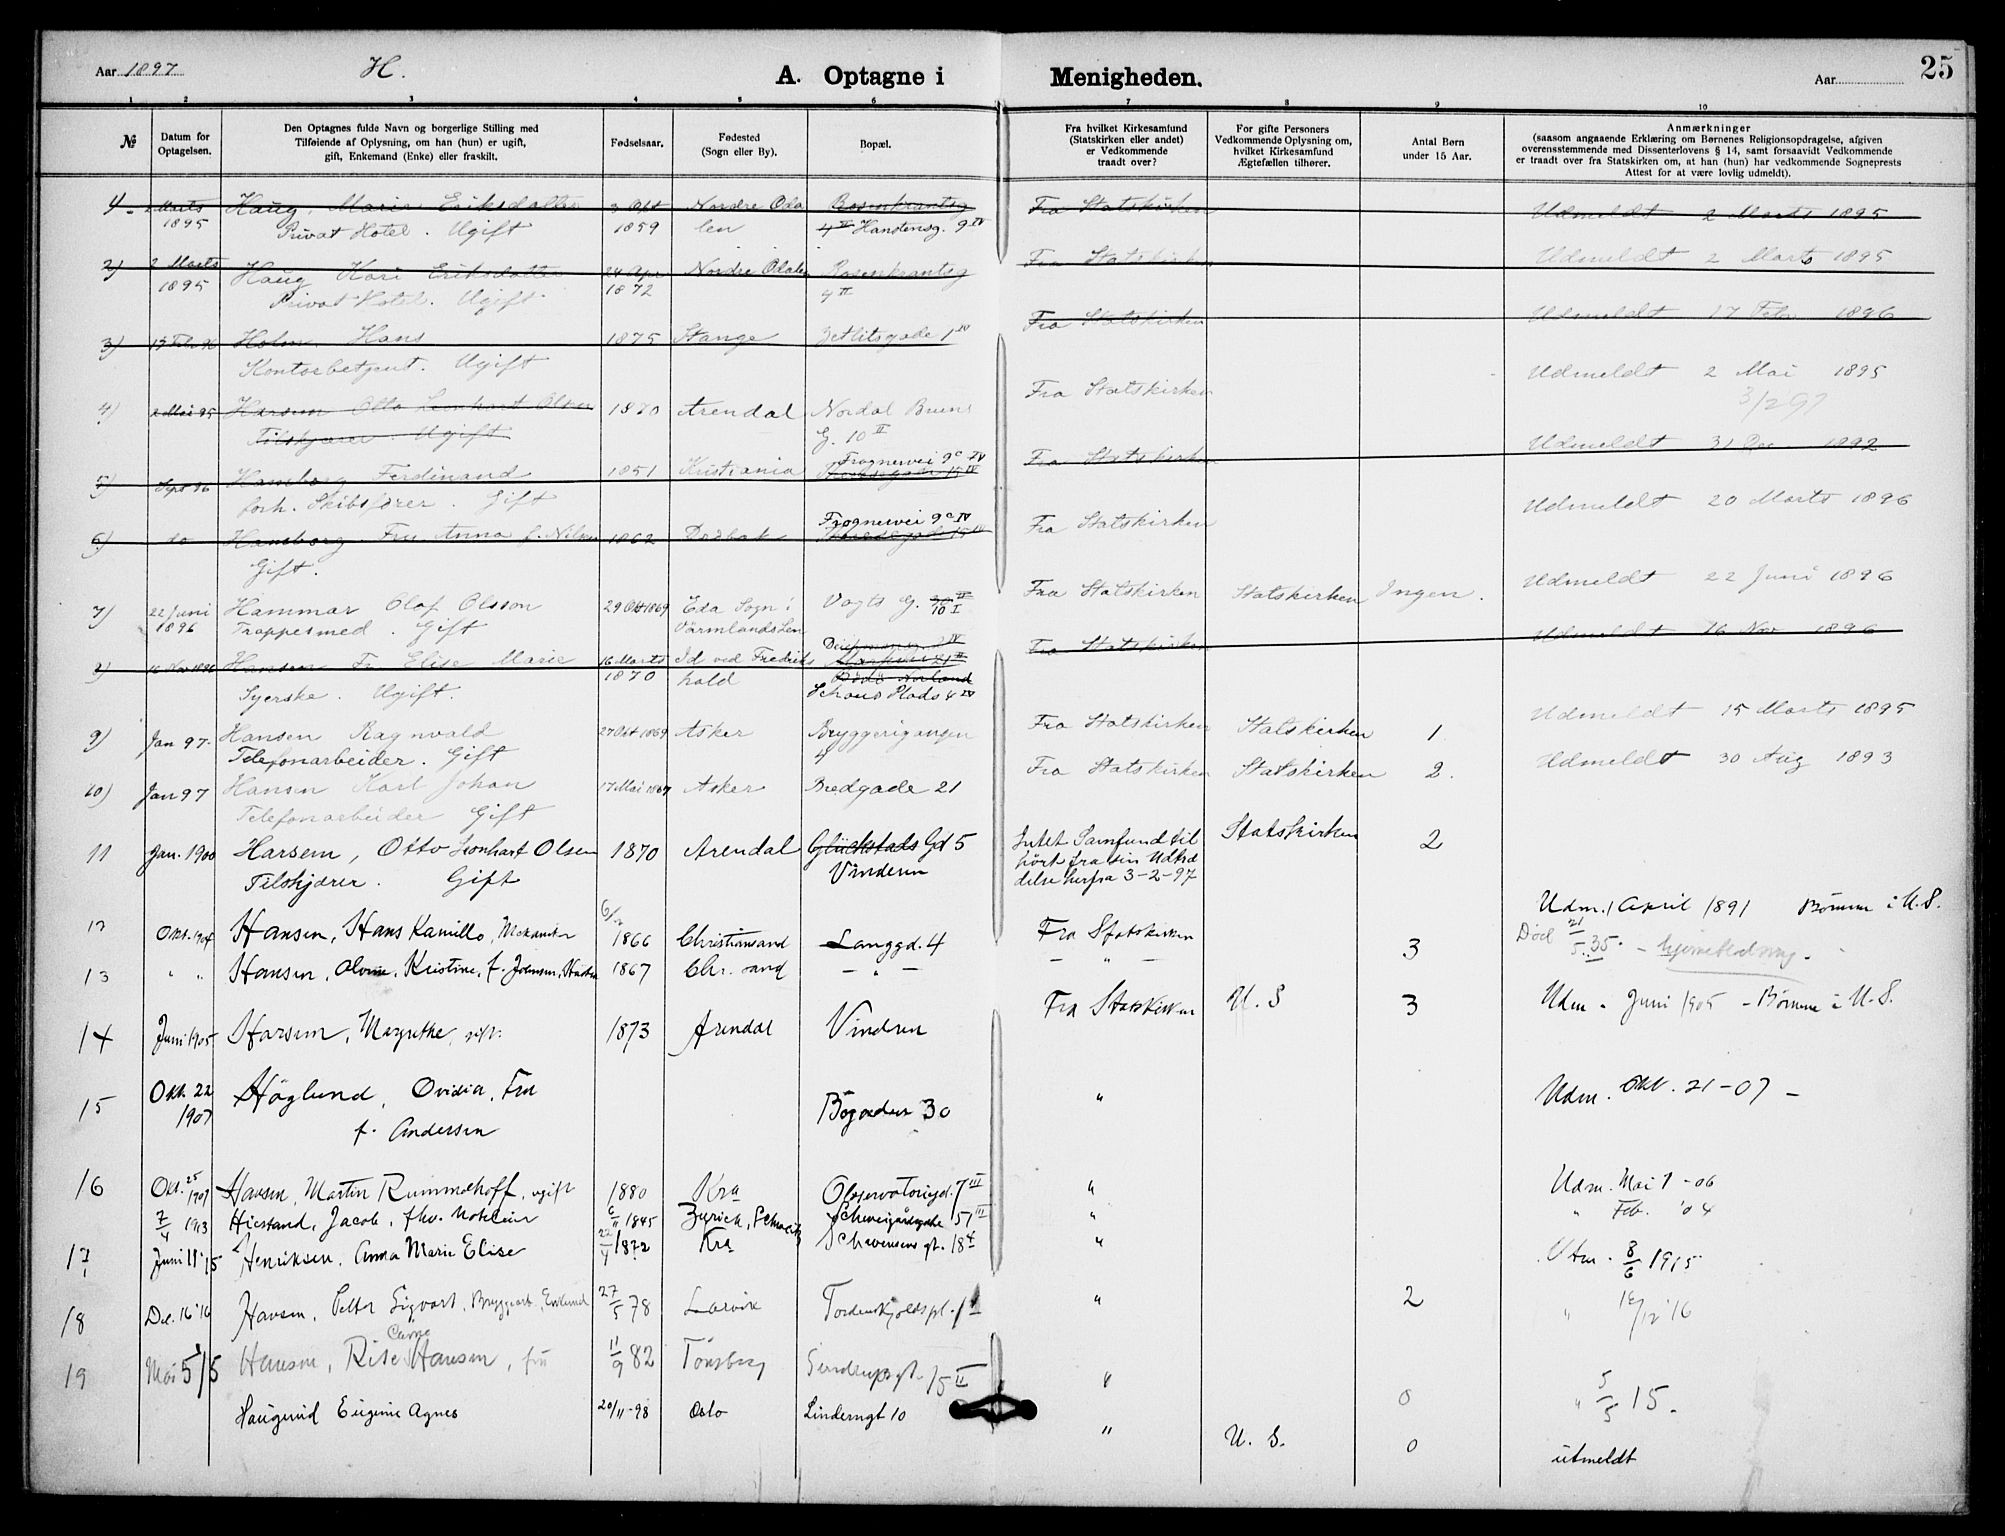 Aar 1897 H. A. Optagne i Menigheden. Aar 25
1 2 3 4 5 6 7 8 9 10
№
Datum for
Optagelsen.
Den Optagnes fulde Navn og borgerlige Stilling med
Tilføiende af Oplysning, om han (hun) er ugift,
gift, Enkemand (Enke) eller fraskilt.
Fødselsaar.
Fødested
(Sogn eller By).
Bopæl.
Fra hvilket Kirkesamfund
(Statskirken eller andet)
er Vedkommende
traadt over?
For gifte Personers
Vedkommende Oplysning om,
hvilket Kirkesamfund
Ægtefællen tilhører.
Antal Børn
under 15 Aar.
Anmærkninger
(saasom angaaende Erklæring om Børnenes Religionsopdragelse, afgiven
overensstemmende med Dissenterlovens § 14, samt forsaavidt Vedkommende
er traadt over fra Statskirken om, at han (hun) har vedkommende Sogneprests
Attest for at være lovlig udmeldt).
1. 2 Marts Haug, Marie Eriksdatter 3 Nordre Oda Rosenkrantsg Fra Statskirken Udmeldt 2 Marts 1895
1895 Privat Hotel. Ugift 1859 len 4 II 9 IV
2) 2 Marts Haug Kari Eriksdatter 24 Apr Nordre Odalen Rosenkrantsg Fra Statskirken Udmeldt 2 Marts 1895
1895 Privat Hotel. Ugift. 1872 4 II
3) Holm Hans 1875 Stange 1 IV Fra Statskirken Udmeldt 17 Feb 1896
Kontorbetjent. Ugift
4) 2 Mai 95 Harsem Otto Leonhart Olsen 1870 Arendal Nordal Bruns Fra Statskirken Udmeldt 2 Mai 1895
Tilskjærer. Ugift G. 10 II 3/2 97
5) Sept 96 Hansborg Ferdinand 1851 Kristiania Frognervei 9c IV Fra Statskirken Udmeldt 31 Dec 1892
forh. Skibsfører. Gift
6) do Hansborg Fru Anna f. Nilsen 1862 Frognervei 9c IV Fra Statskirken Udmeldt 20 Marts 1896
Gift.
7) 22 Juni Hammar Olaf Olsson 29 Okt 1869 Eda Sogn i Vogts G. 10 I Fra Statskirken Statskirken Ingen. Udmeldt 22 Juni 1896
1896 Trappesmed. Gift Värmlands Len
8) 16 Nov 1896 Hansen Fr. Elise Marie 16 Marts Id ved Fredriks Fra Statskirken Udmeldt 16 Nov 1896
Syerske. Ugift. 1870 hald Schous Plads 4 IV
9) Jan 97. Hansen Ragnvald 27 Okt 1869 Asker Bryggerigangen Fra Statskirken Statskirken 1 Udmeldt 15 Marts 1895
Telefonarbeider. Gift 4
10) Jan 97 Hansen Karl Johan 17 Mai 1867 Asker Bredgade 21 Fra Statskirken Statskirken 2. Udmeldt 30 Aug 1893
Telefonarbeider Gift
11 Jan. 1900 Harsem, Otto Leonhart Olsen 1870 Arendal Glückstads Gd 5 Intet Samfund til Statskirken 2
Tilskjærer. Gift Vinderen hørt fra sin Udtræ
delse herfra 3-2-97
12 Okt. 1904 Hansen, Hans Kamillo, Mekaniker 6/2 1866 Christiansand Langgd. 4 Fra Statskirken 3 Udm. 1 April 1891 Børnene i U.S.
Død 21/5. 35. - hjerneblødning.
13 " " Hansen, Kristine, f. Johnsen, Hustru 1867 Chr. sand - " - - " -
14 Juni 1905 Harsem, Margrethe, gift. 1873 Arendal Vindren Fra Statskirken U. S 3 Udm. Juni 1905 - Børnene i U.S.
15 Okt. 22 Höglund, Ovidia, Fru Bogaden 30 " Udm. Okt. 21-07 -
1907 f. Andersen
16 Okt. 25 1907 Hansen, Martin Rummelhoff, ugift 1880 Kra Observatoriegd. 7 III " Udm. Mai 1 - 06
7/4 1913 Hiestand, Jacob, 6/11 1845 Zyrich, Schweitz Schweigaardsgade 51 III " " Feb. '04
17 Juni 11 '15 Henriksen, Anna Marie Elise 22/4 1872 Kra 18 4 " Utm. 8/6 1915
18 De. 16 '16 Hansen, Petter Sigvart, 27/5 78 Larvik Tordenskjoldspl. 1 " 2 " 16/12 '16
19 Mai 5 15 Hansen, Hansen, fru 11/9 82 Tønsberg 15 II " 0 " 5/5 15.
Haugerud Eugenie Agnes 20/11-98 Oslo Linderngt 10 " U. S. 0 utmeldt